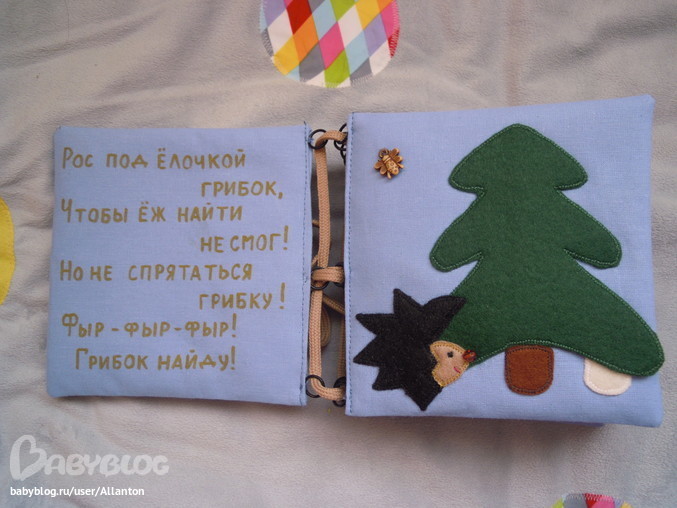 Рос под ёлочкой
грибок,
Чтобы ёж найти
не смог!
Но не спрятаться
грибку!
Фыр-фыр-фыр!
Грибок найду!
BABYBLOG
babyblog.ru/user/Allanton